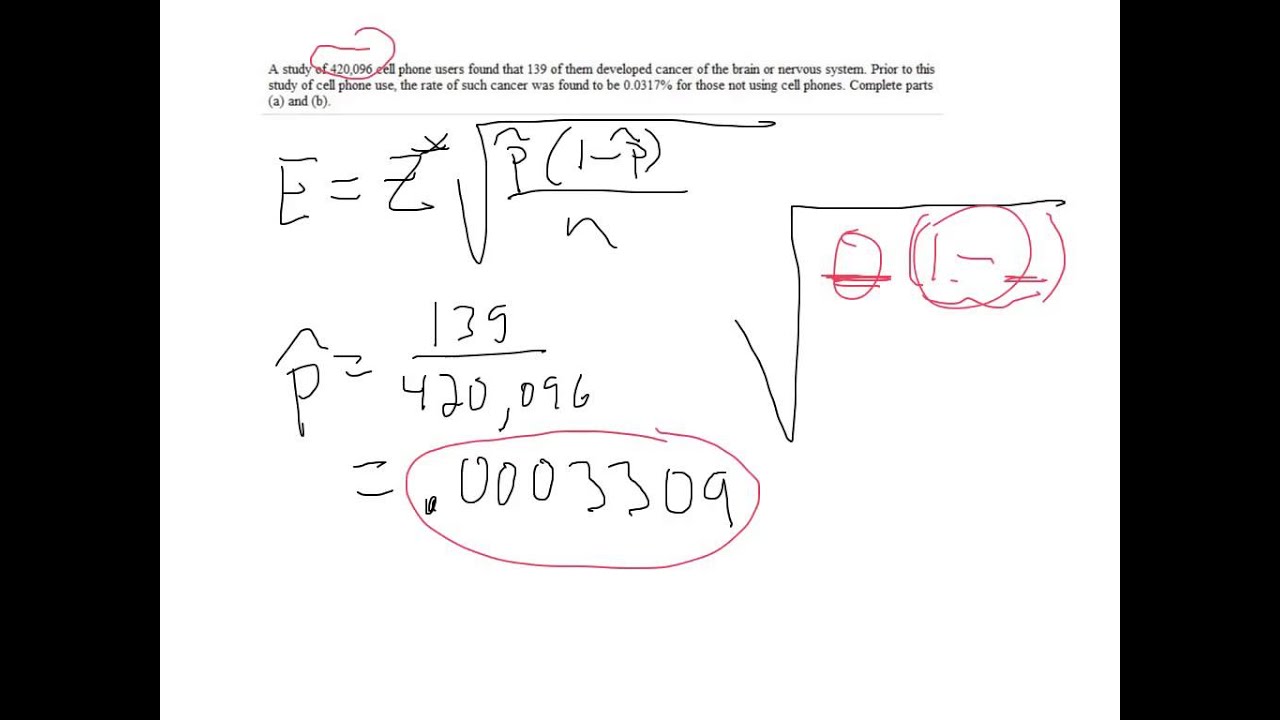 A study of 420,096 cell phone users found that 139 of them developed cancer of the brain or nervous system. Prior to this
study of cell phone use, the rate of such cancer was found to be 0.0317% for those not using cell phones. Complete parts
(a) and (b).
E = Z* √(p̂(1-p̂)/n)
√ (1-
p̂ = 139/420,096
= .0003309